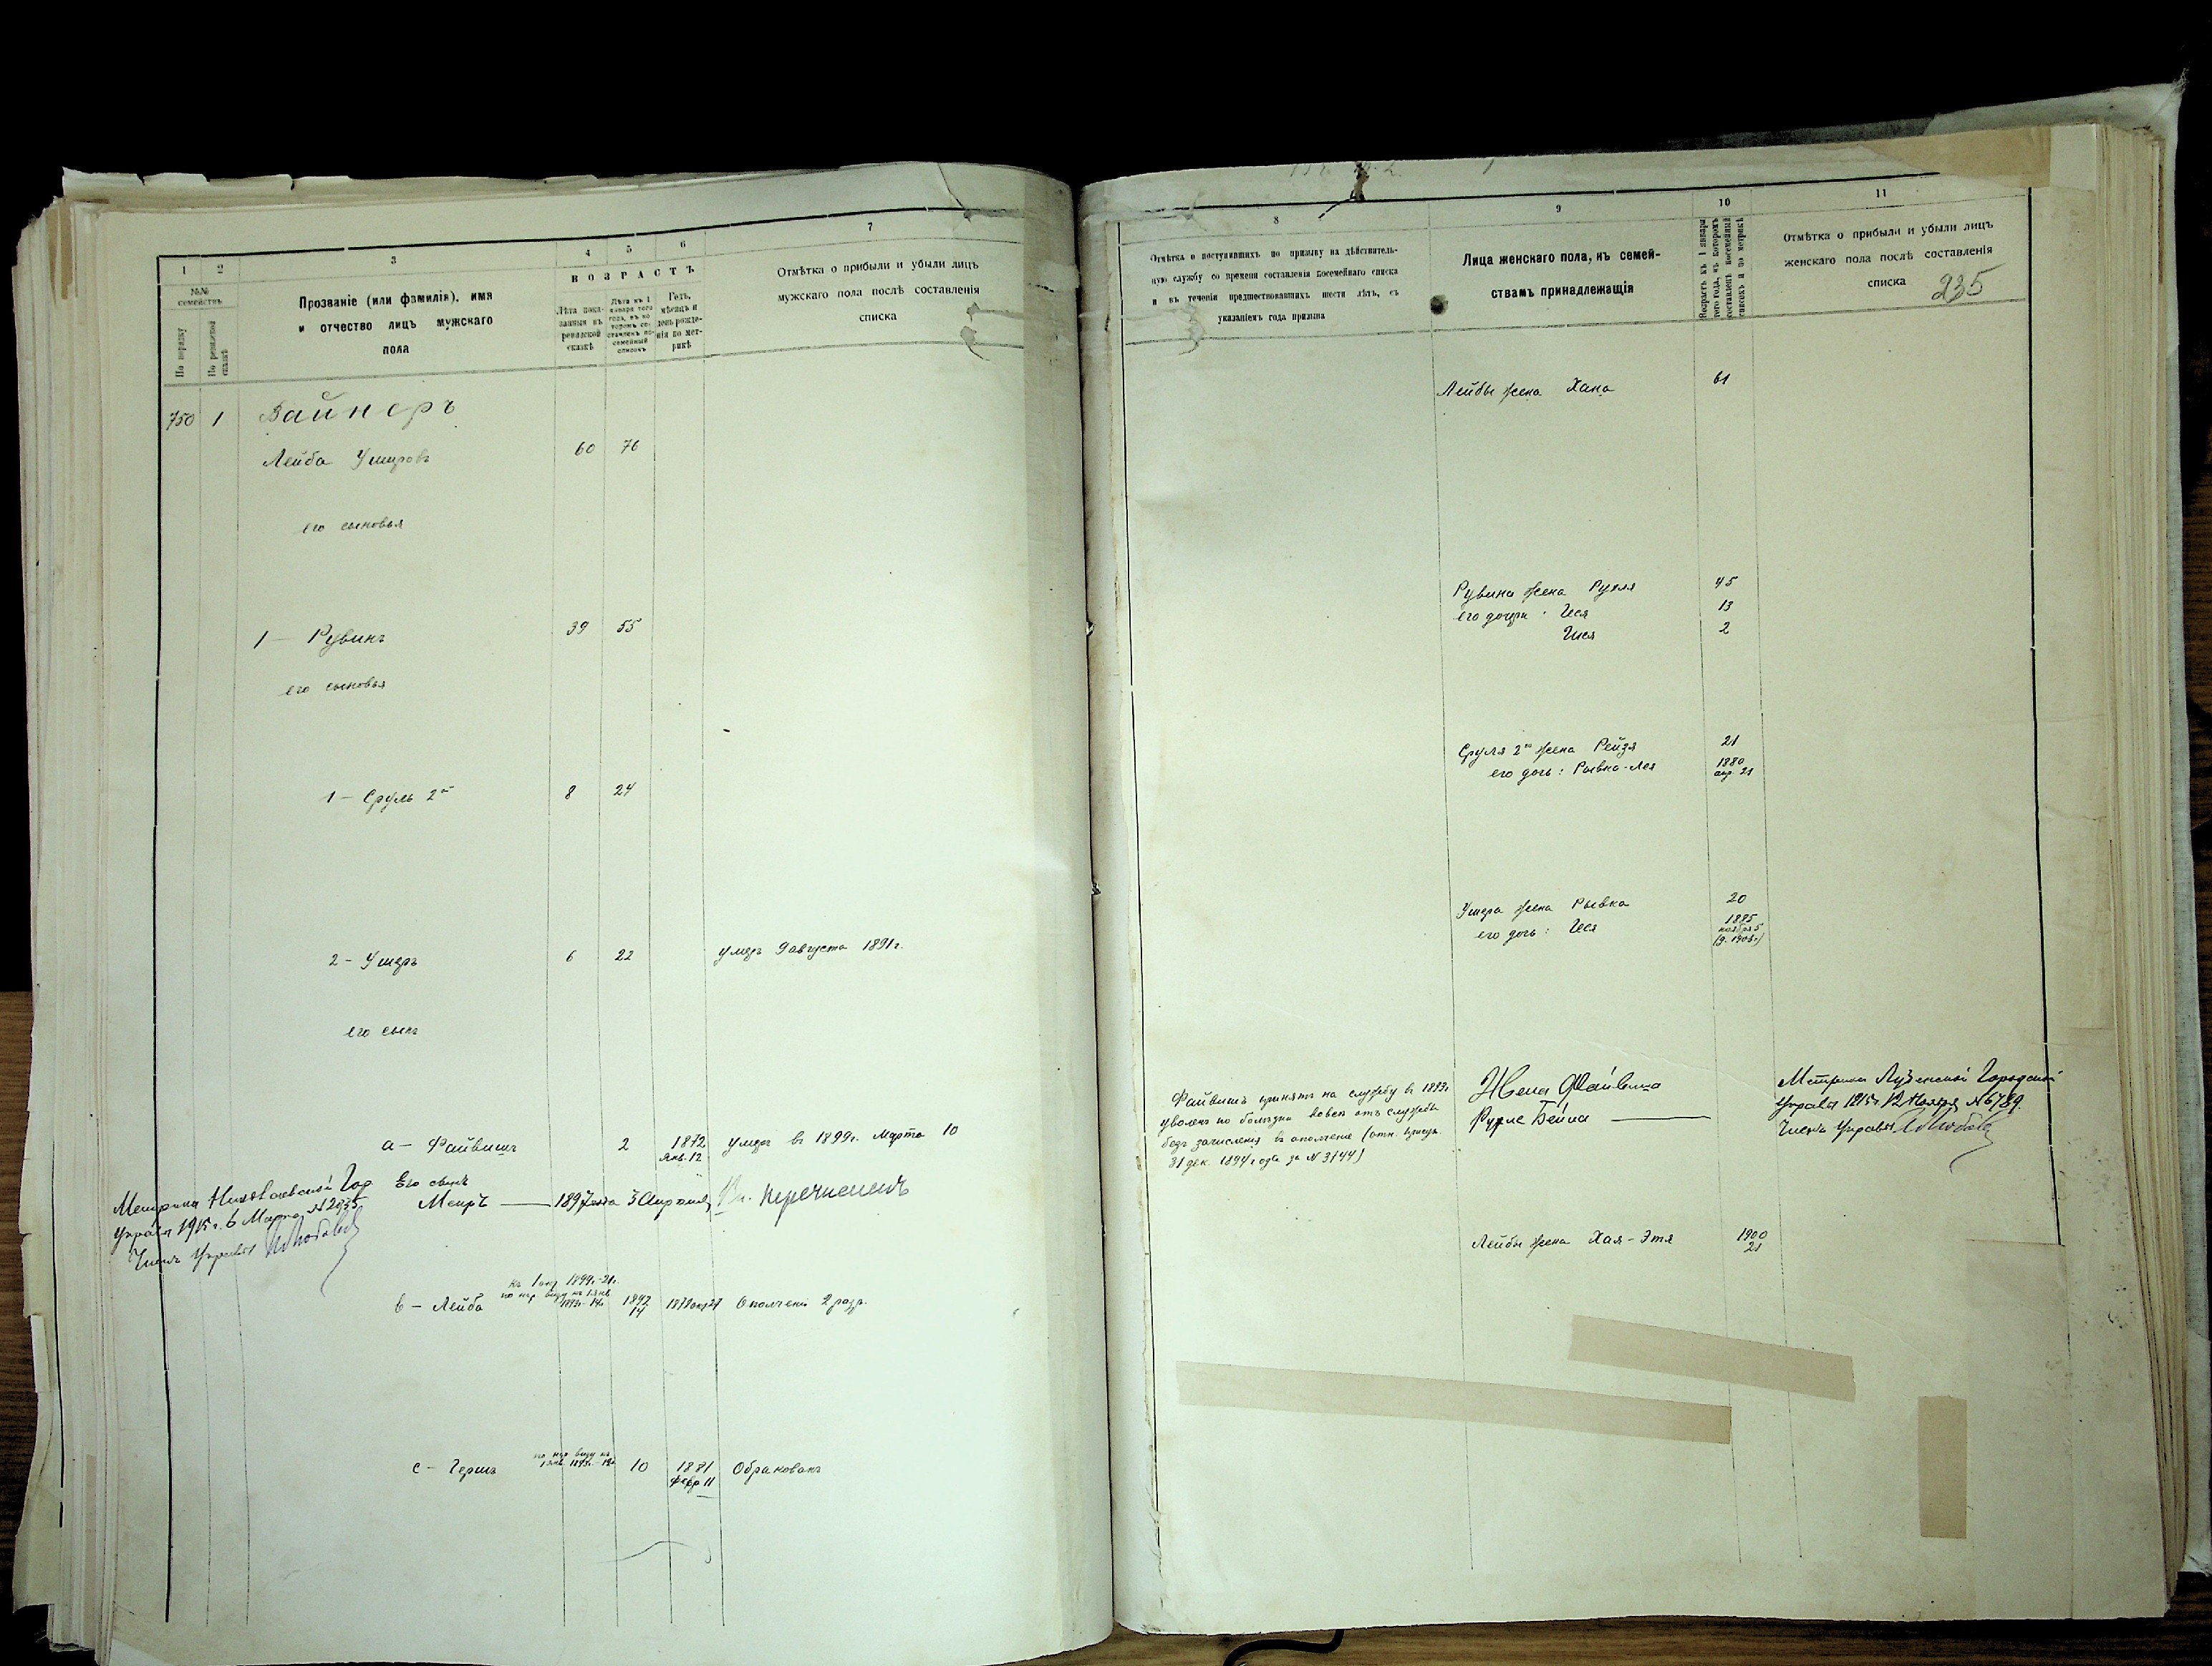 1
2
3
4
5
6
7
№№
семействъ
По порядку
По ревизской сказкѣ
Прозваніе (или фамилія), имя
и отчество лицъ мужскаго
пола
ВОЗРАСТЪ
Лѣта пока-
занныя въ
ревизской
сказкѣ
Лѣта къ 1
января того
года, въ ко-
торомъ со-
ставленъ по-
семейный
списокъ
Годъ,
мѣсяцъ и
день рожде-
нія по мет-
рикѣ
Отмѣтка о прибыли и убыли лицъ
мужскаго пола послѣ составленія
списка
750 1 Вайнеръ
Лейба Умеровъ 60 76
его сыновья
1 — Рувинъ 39 55
его сыновья
1 — Сруль 2й 8 24
2 — Умеръ 6 22 умеръ 9 августа 1891 г.
его сынъ
а — Файвишъ 2 1872 умеръ въ 1899 г. Марта 10
Янв. 12
Его сынъ
Меиръ — 1897 года 3 Апреля Вн. перечисленъ
Метрика Николаевской Гор.
Управы 1915 г. 6 Марта № 2035
Членъ Управы
къ 1 окт 1899 г. - 21 г.
по нар. виду къ 1 янв.
1893 г. - 14 л.
в — Лейба 1892 Ополченіе 2 разр.
14
по нар. виду къ
1 янв. 1893 г.
с — Гершъ 10 1881 Обракованъ
Февр 11
8
9
10
11
Отмѣтка о поступившихъ по призыву на дѣйствитель-
ную службу со времени составленія посемейнаго списка
и въ теченіи предшествовавшихъ шести лѣтъ, съ
указаніемъ года призыва
Лица женскаго пола, къ семей-
ствамъ принадлежащія
Возрастъ къ 1 января
того года, въ которомъ
составленъ посемейный
списокъ и по метрикѣ
Отмѣтка о прибыли и убыли лицъ
женскаго пола послѣ составленія
списка
235
Лейбы жена Хана 61
Рувина жена Рухля 45
его дочери: Цея 13
2
Сруля 2го жена Рейзя 21
его дочь: Рывка-Лея 1880
апр. 21
Умера жена Рывка 20
его дочь: Цея 1885
ноября 5
Файвишъ принятъ на службу въ 1893 г.
уволенъ по болѣзни вовсе отъ службы
безъ зачисленія въ ополченіе
31 дек. 1894 года за № 3144)
Жена Файвиша
Рухле Бейла —
Метрика Городской
Управы 1915 г. 12 Ноября № 6789.
Членъ Управы
Лейбы жена Хая-Этя 1900
21